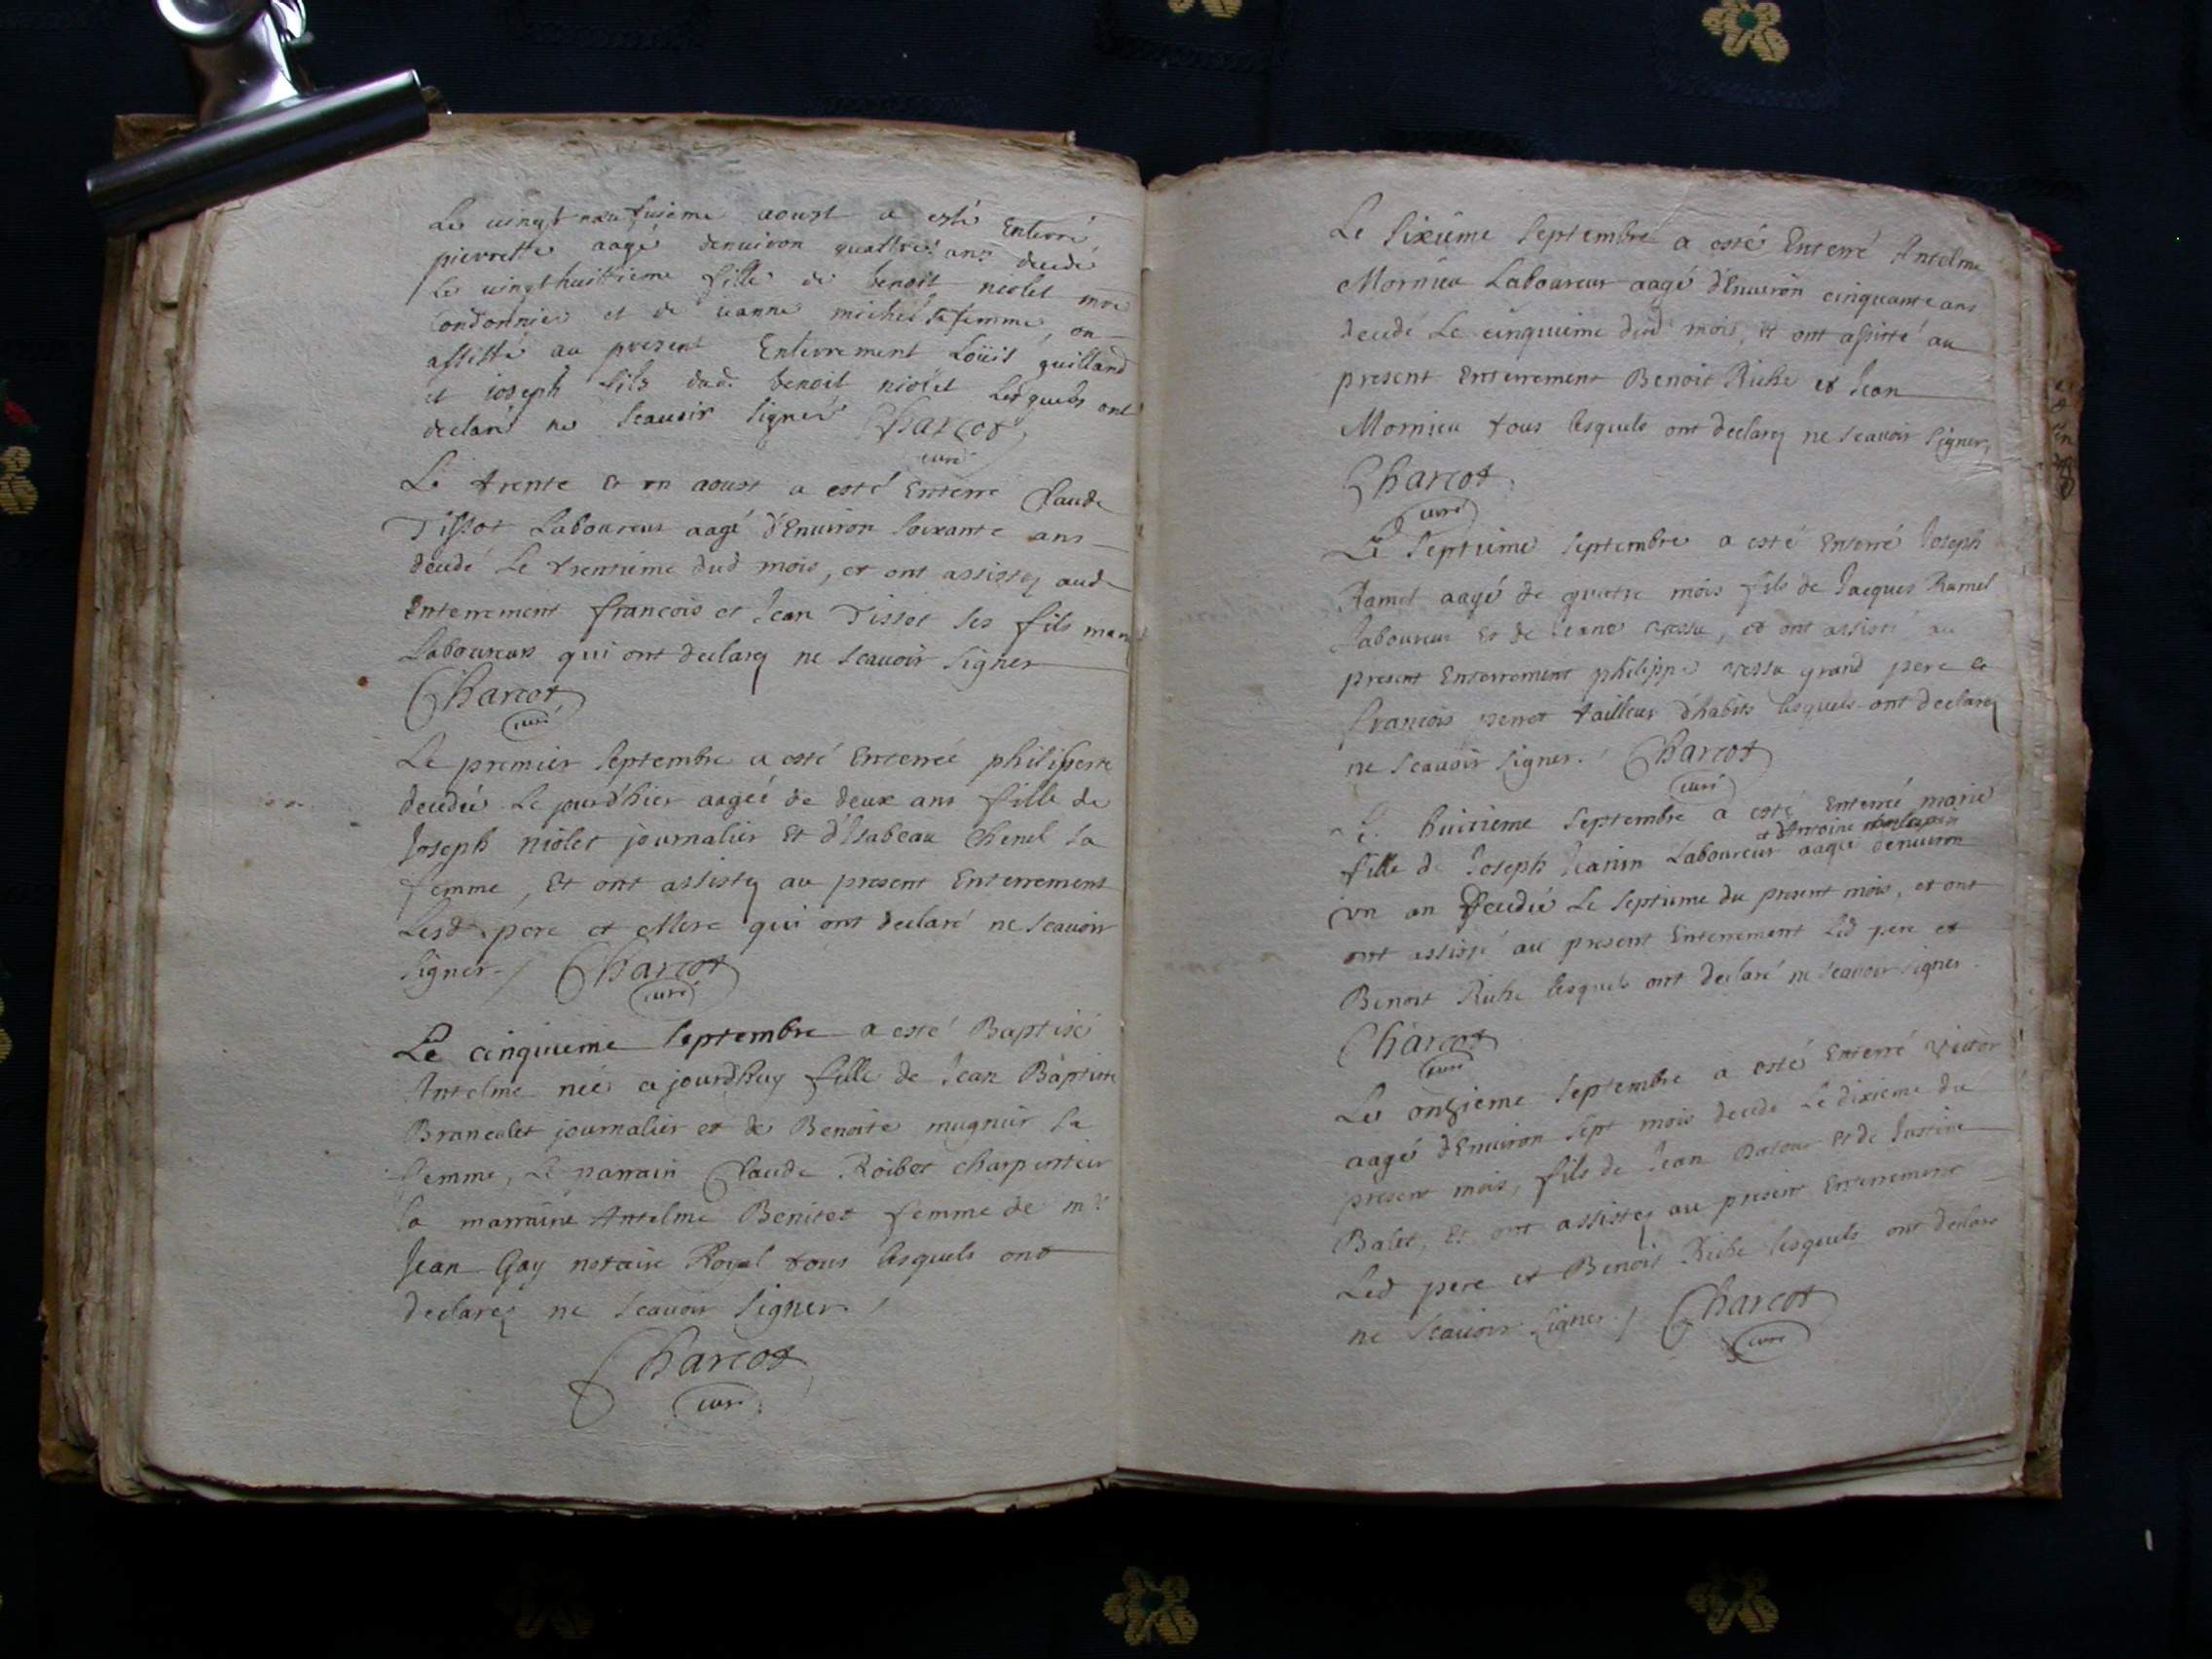 Le vingt neufuieme aoust a esté Enterré
pierrette aagé denuiron quattre ans decedé
Le vingthuittieme fille de benoit niolet mre
Cordonnier et de ieanne michel sa femme, on
assisté au present Enterrement Loüis guilland
et ioseph fils dud. benoit niolet Lesquels ont
declaré ne scauoir signer Charcot
curé
Le trente et vn aoust a esté Enterré Claude
Tissot Laboureur aagé d'Enuiron soixante ans
decedé Le trentieme dud mois, et ont assistez aud
Enterrement francois et Jean Tissot ses fils
Laboureurs qui ont declarez ne scauoir signer
Charcot
curé
Le premier septembre a esté Enterrée philiberte
decedeé Le jourd'hier aageé de deux ans fille de
Joseph niolet journalier Et d'Isabeau Chenel sa
femme, Et ont assistez au present Enterrement
Lesd pere et Mere qui ont declaré ne scauoir
signer./ Charcot
curé
Le cinquieme septembre a esté Baptisé
Antelme neé ajourdhuy fille de Jean Baptiste
Brancolet journalier et de Benoite mugnier sa
femme, Le parrain Claude Roibet charpentier
la marraine Antelme Benitet femme de mre
Jean Gay notaire Royal tous lesquels ont
declarez ne scauoir signer /
Charcot
curé
Le sixieme septembre a esté Enterré Antelme
Mornieu Laboureur aagé d'Enuiron cinquante ans
decedé Le cinquieme dud mois, et ont assisté au
present Enterrement Benoit Riche et Jean
Mornieu tous lesquels ont declarez ne scauoir signer,
Charcot
curé
Le septieme septembre a esté Enterré Joseph
Ramel aagé de quatre mois fils de Jacques Ramel
Laboureur Et de Jeane vessu, et ont assisté au
present Enterrement philippe vessu grand pere et
francois perret tailleur d'habits lesquels ont declarez
ne scauoir signer./ Charcot
curé
Le huitieme septembre a esté Enterré marie
et d'Antoine
fille de Joseph Jeanin Laboureur aageé denuiron
vn an decedeé Le septieme du present mois, et ont
ont assisté au present Enterrement Led pere et
Benoit Riche lesquels ont declaré ne scauoir signer.
Charcot
curé
Le onzieme septembre a esté Enterré victor
aagé d'Enuiron sept mois decedé Le dixieme du
present mois, fils de Jean Et de Justine
Balet, Et ont assistez au present Enterrement
Led pere et Benoit Riche lesquels ont declaré
ne scauoir signer./ Charcot
curé